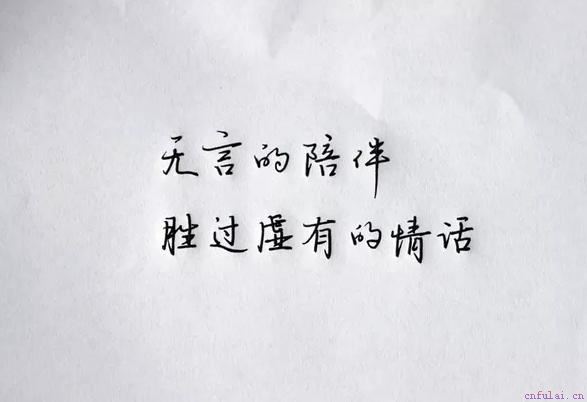 无言的陪伴
胜过虚有的情话
cnfulai.cn